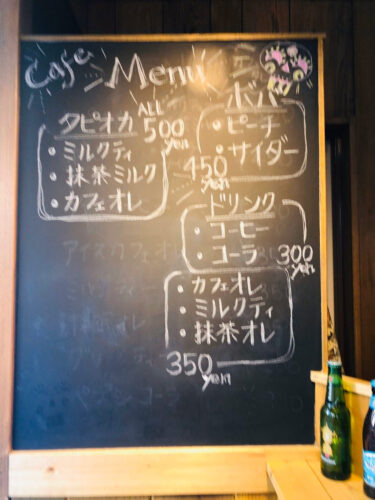 Cafe Menu
タピオカ
ALL 500 yen
・ミルクティ
・抹茶ミルク
・カフェオレ
ボバ
・ピーチ
・サイダー
450 yen
ドリンク
・コーヒー
・コーラ
300 yen
・カフェオレ
・ミルクティ
・抹茶オレ
350 yen